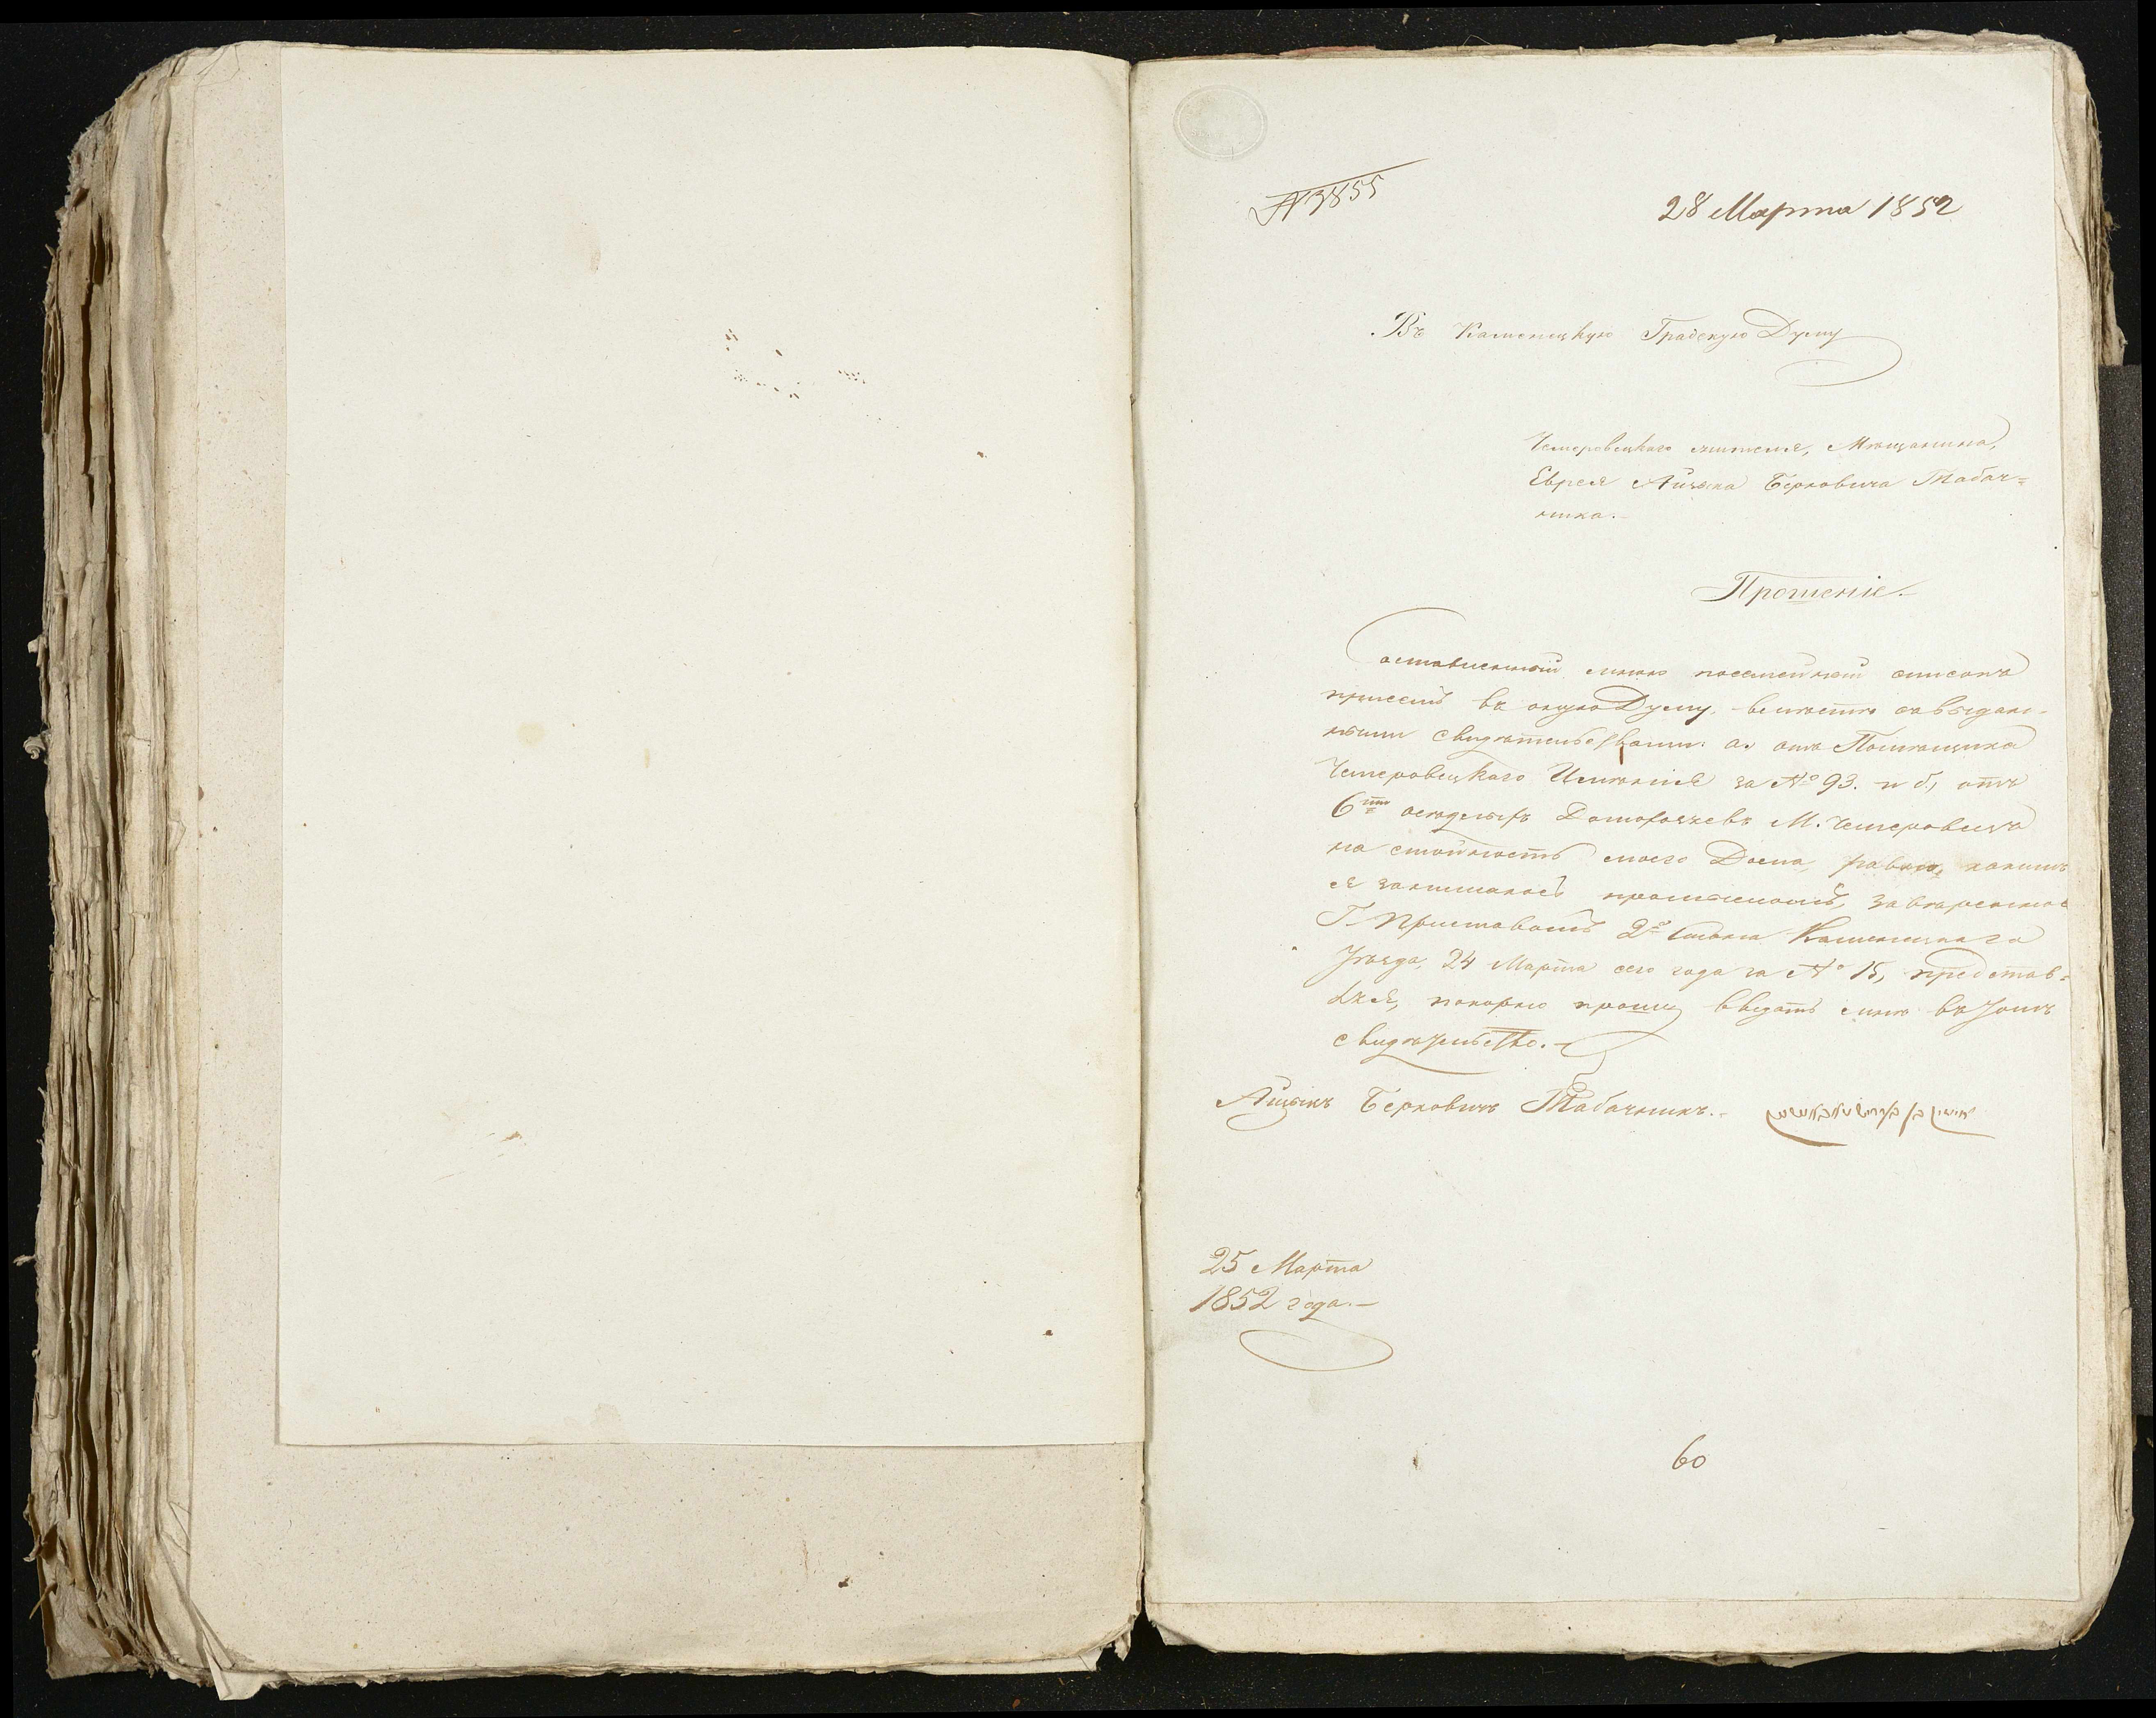 № 3855
28 Марта 1852
Въ Каменецкую Градскую Думу
Чемеровецкаго жителя, Мѣщанина,
Еврея Айзыка Берковича Табач=
ника.
Прошеніе.
Составленный мною посемейный списокъ
при семъ въ оную Думу, вмѣстѣ съ выдан-
ными свидѣтельствами: а., отъ Помѣщика
Чемеровецкаго Имѣнія за № 93. и б., отъ
6ти осѣдлыхъ Домохозяевъ М. Чемеровецъ
на стойность моего Дома, равно, какимъ
я занимаюсь промысломъ, завѣренное
Г. Приставомъ 2го Стана Каменецкаго
Уѣзда, 24 Марта сего года за № 15, представ=
ляя, покорно прошу выдать мнѣ въ томъ
свидѣтельство.
Айзыкъ Берковичъ Табачникъ.
25 Марта
1852 года.
60